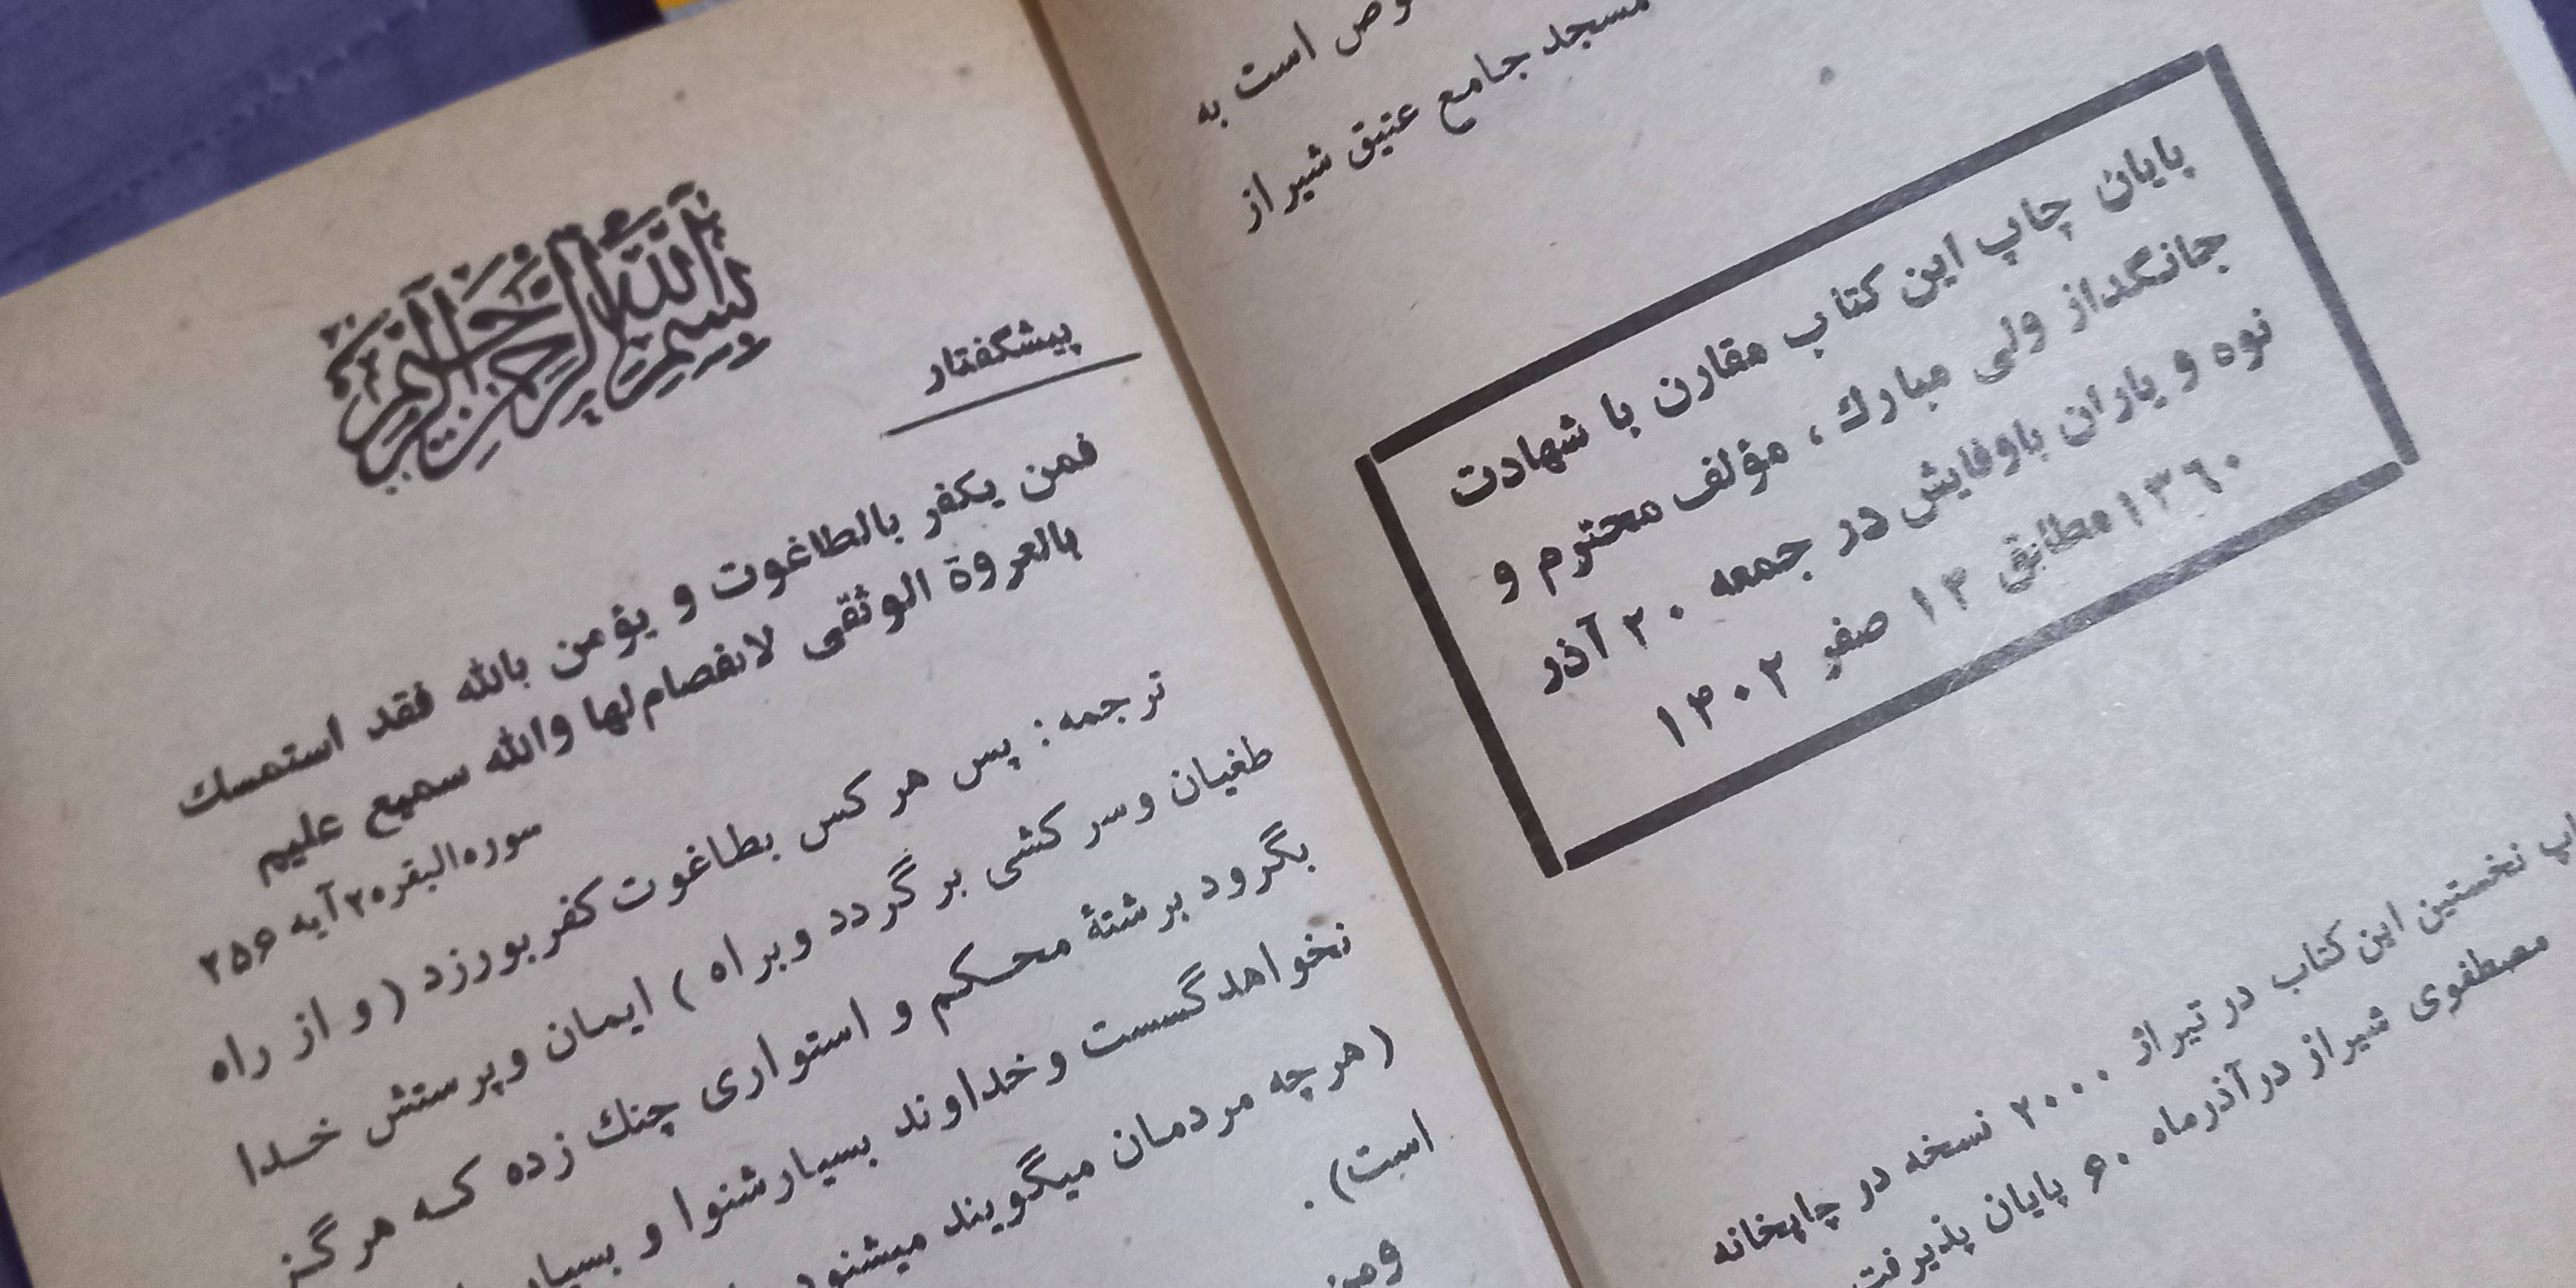 وص است به
مسجد جامع عتیق شیراز
پایان چاپ این کتاب مقارن با شهادت
جانگداز ولی مبارك ، مؤلف محترم و
نوه و یاران باوفایش در جمعه ۲۰ آذر
۱۳٦۰ مطابق ۱۴ صفر ۱۴۰۲
اپ نخستین این کتاب در تیراژ ۲۰۰۰ نسخه در چاپخانه
مصطفوی شیراز در آذرماه ۶۰ پایان پذیرفت
بسم الله الرحمن الرحیم
پیشگفتار
فمن یکفر بالطاغوت و یؤمن بالله فقد استمسك
بالعروة الوثقی لانفصام لها والله سمیع علیم
سوره البقره ۲ آیه ۲۵۶
ترجمه: پس هر کس بطاغوت کفر بورزد ( و از راه
طغیان و سر کشی بر گردد و براه ) ایمان و پرستش خدا
بگرود برشتهٔ محکم و استواری چنك زده که هر گز
نخواهد گسست و خداوند بسیار شنوا و بسیار
( هر چه مردمان میگویند میشنود
است) .